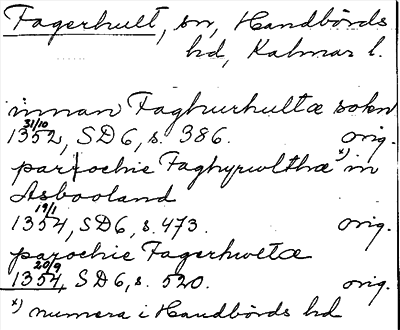 Fagerhult, sn, Handbörds
hd, Kalmar l.
innan Faghurhultæ sokn
31/10
1352, SD6, s. 386. orig.
parrochie Faghyrwlthæ x) in
Asbooland
19/1
1354, SD6, s. 473. orig.
parochie Fagerhwltæ
20/9
1354, SD6, s. 520. orig.
x) numera i Handbörds hd